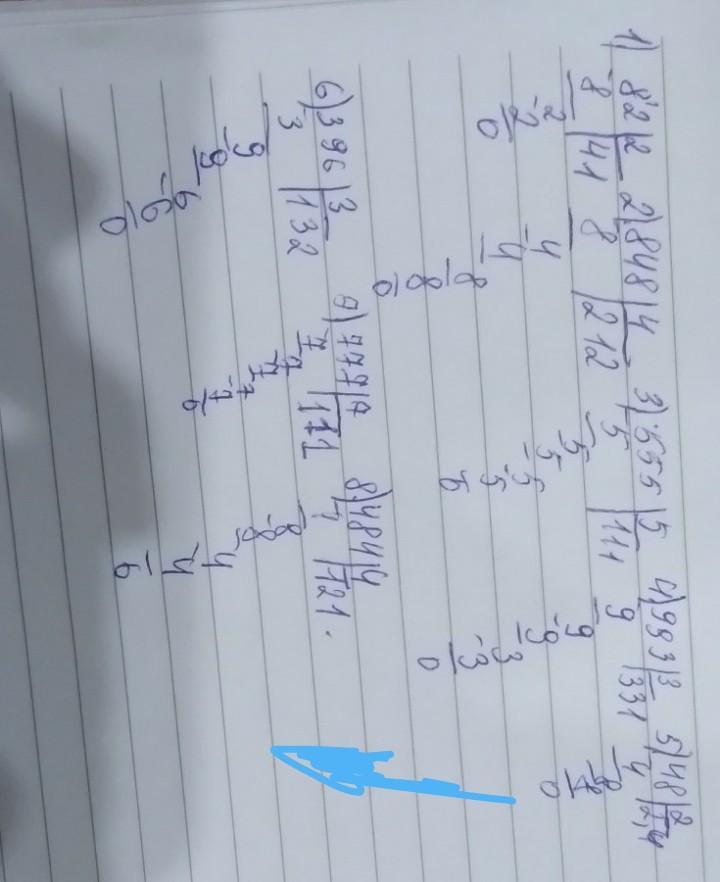 1) 82 |2 2) 848 |4 3) 555 |5 4) 993 |3 5) 48 |2
-8 |41 8 |212 5 |111 9 |331 4 |2,4
-2 -4 -5 -9 -8
2 4 5 9 8
0 8 -5 3 0
8 5 -3
0 0 0
6) 396 |3 7) 777 |7 8) 484 |4
3 |132 7 |111 4 |121.
-9 7 -8
9 7 8
6 -7 4
-6 7 4
0 0 0